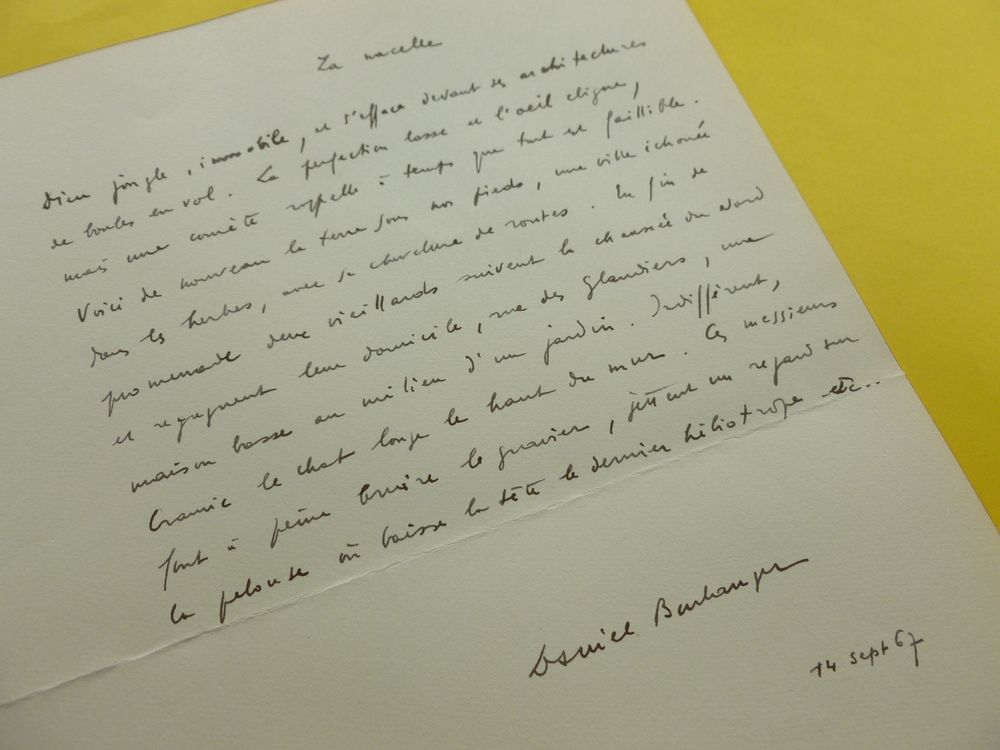 La nacelle
Dieu jongle, immobile, et s'efface devant ses architectures
de boules en vol. La perfection lasse et l'oeil cligne,
mais une comète rappelle à temps que tout est faillible.
Voici de nouveau la terre sous nos pieds, une ville échouée
dans les herbes, avec sa chevelure de routes. En fin de
promenade deux vieillards suivent la chaussée du Nord
et regagnent leur domicile, rue des Glaudiers, une
maison basse au milieu d'un jardin. Indifférent,
Cramic le chat longe le haut du mur. Ces messieurs
font à peine bruire le gravier, jettent un regard sur
la pelouse où baisse la tête le dernier héliotrope etc..
Daniel Boulanger
14 sept 67